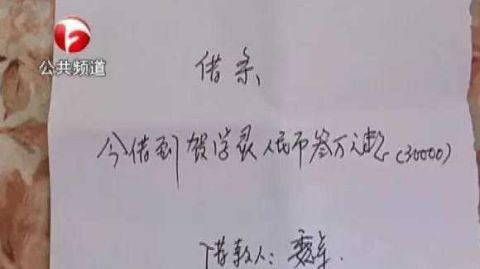 公共频道
借条
今借到贺学灵人民币叁万元整(30000)
借款人：